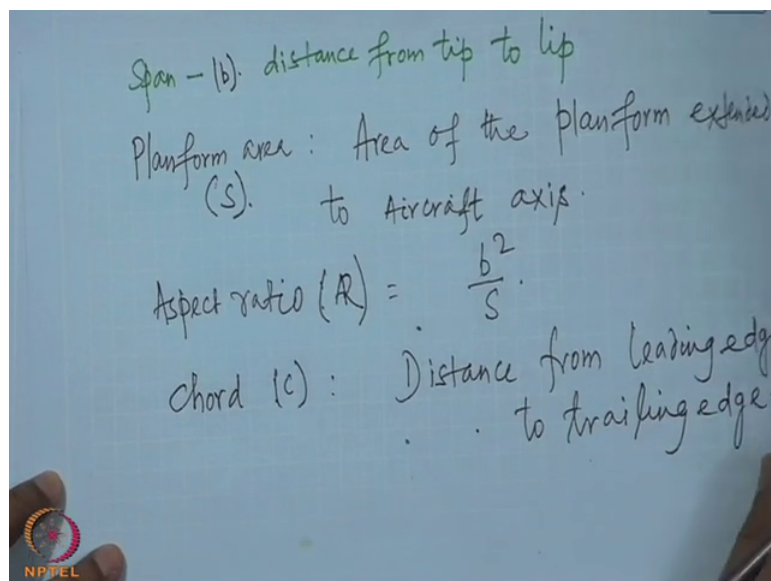 Span - (b). distance from tip to lip
Planform area : Area of the planform extended
(S). to Aircraft axis.
Aspect ratio (AR) = b²/S.
Chord (C) : Distance from leading edg
to trailing edge
NPTEL